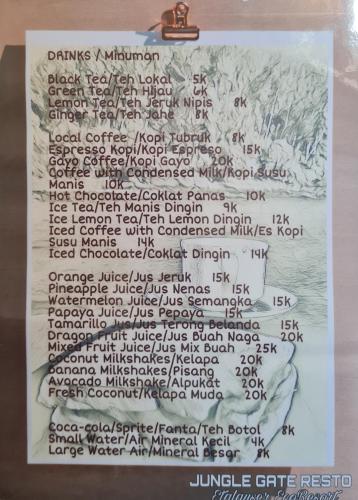 DRINKS / Minuman
Black Tea/Teh Lokal 5k
Green Tea/Teh Hijau 6k
Lemon Tea/Teh Jeruk Nipis 8k
Ginger Tea/Teh Jahe 8k
Local Coffee /Kopi Tubruk 8k
Espresso Kopi/Kopi Espreso 15k
Gayo Coffee/Kopi Gayo 20k
Coffee with Condensed Milk/Kopi Susu
Manis 10k
Hot Chocolate/Coklat Panas 10k
Ice Tea/Teh Manis Dingin 9k
Ice Lemon Tea/Teh Lemon Dingin 12k
Iced Coffee with Condensed Milk/Es Kopi
Susu Manis 14k
Iced Chocolate/Coklat Dingin 14k
Orange Juice/Jus Jeruk 15k
Pineapple Juice/Jus Nenas 15k
Watermelon Juice/Jus Semangka 15k
Papaya Juice/Jus Pepaya 15k
Tamarillo Jus/Jus Terong Belanda 15k
Dragon Fruit Juice/Jus Buah Naga 20k
Mixed Fruit Juice/Jus Mix Buah 25k
Coconut Milkshakes/Kelapa 20k
Banana Milkshakes/Pisang 20k
Avocado Milkshake/Alpukat 20k
Fresh Coconut/Kelapa Muda 20k
Coca-cola/Sprite/Fanta/Teh Botol 8k
Small Water/Air Mineral Kecil 4k
Large Water Air/Mineral Besar 8k
JUNGLE GATE RESTO